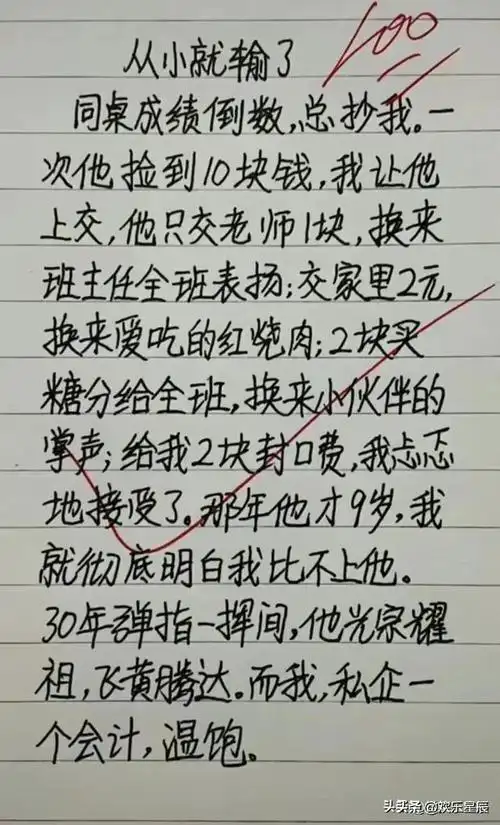 从小就输了
100
同桌成绩倒数,总抄我。一
次他捡到10块钱,我让他
上交,他只交老师1块,换来
班主任全班表扬;交家里2元,
换来爱吃的红烧肉;2块买
糖分给全班,换来小伙伴的
掌声;给我2块封口费,我忐忑
地接受了。那年他才9岁,我
就彻底明白我比不上他。
30年弹指一挥间,他光宗耀
祖,飞黄腾达。而我,私企一
个会计,温饱。
头条@欢乐星辰